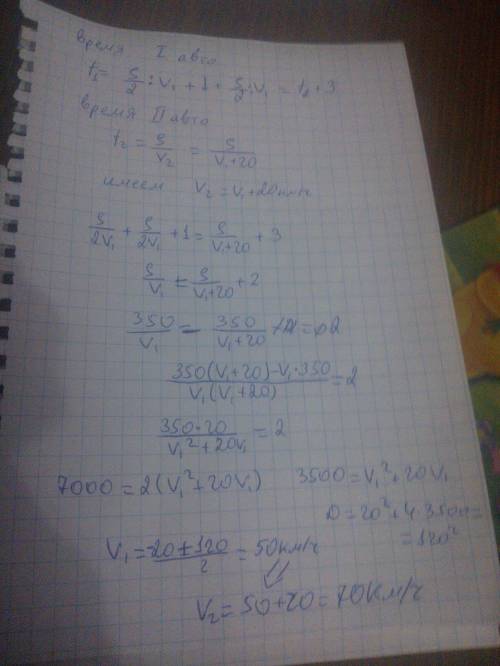 время I авто
t₁ = S/2 : V₁ + 1 + S/2 : V₁ = t₂ + 3
время II авто
t₂ = S/V₂ = S/(V₁+20)
имеем V₂ = V₁ + 20 км/ч
S/2V₁ + S/2V₁ + 1 = S/(V₁+20) + 3
S/V₁ = S/(V₁+20) + 2
350/V₁ - 350/(V₁+20) = 2
(350(V₁+20) - V₁·350)/(V₁(V₁+20)) = 2
350·20/(V₁²+20V₁) = 2
7000 = 2(V₁²+20V₁) 3500 = V₁²+20V₁
D = 20²+4·3500 =
= 120²
V₁ = (-20+120)/2 = 50 км/ч
V₂ = 50+20 = 70 км/ч